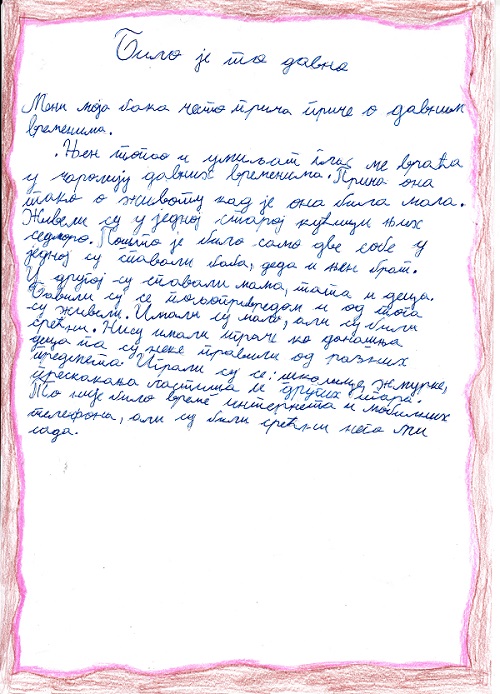 Било је то давно
Мени моја бака често прича приче о давним
временима.
Њен топао и умиљат глас ме враћа
у чаролију давних временима. Прича она
тако о животу кад је она била мала.
Живели су у једној старој кућици њих
седморо. Пошто је било само две собе у
једној су спавали баба, деда и њен брат.
У другој су спавали мама, тата и деца.
Бавили су се пољопривредом и од тога
су живели. Имали су мало, али су били
срећни. Нису имали играче ко данашња
деца па су неке правили од разних
предмета. Играли су се: школице, жмурке,
прескакања ластиша и других игара.
То није било време интернета и мобилних
телефона, али су били срећни него ми
сада.